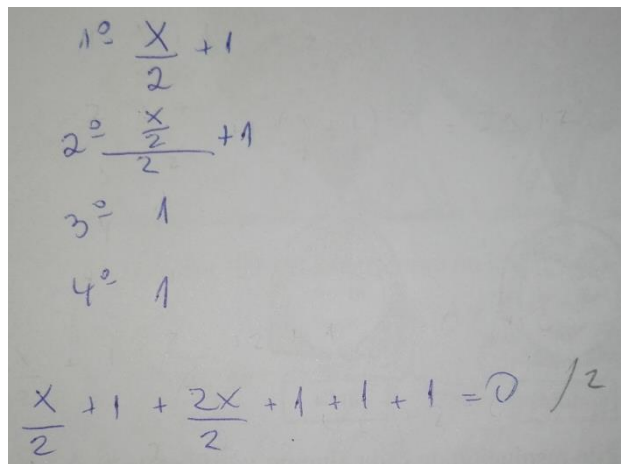 1º x/2 + 1
2º (x/2)/2 + 1
3º 1
4º 1
x/2 + 1 + 2x/2 + 1 + 1 + 1 = 0 /2